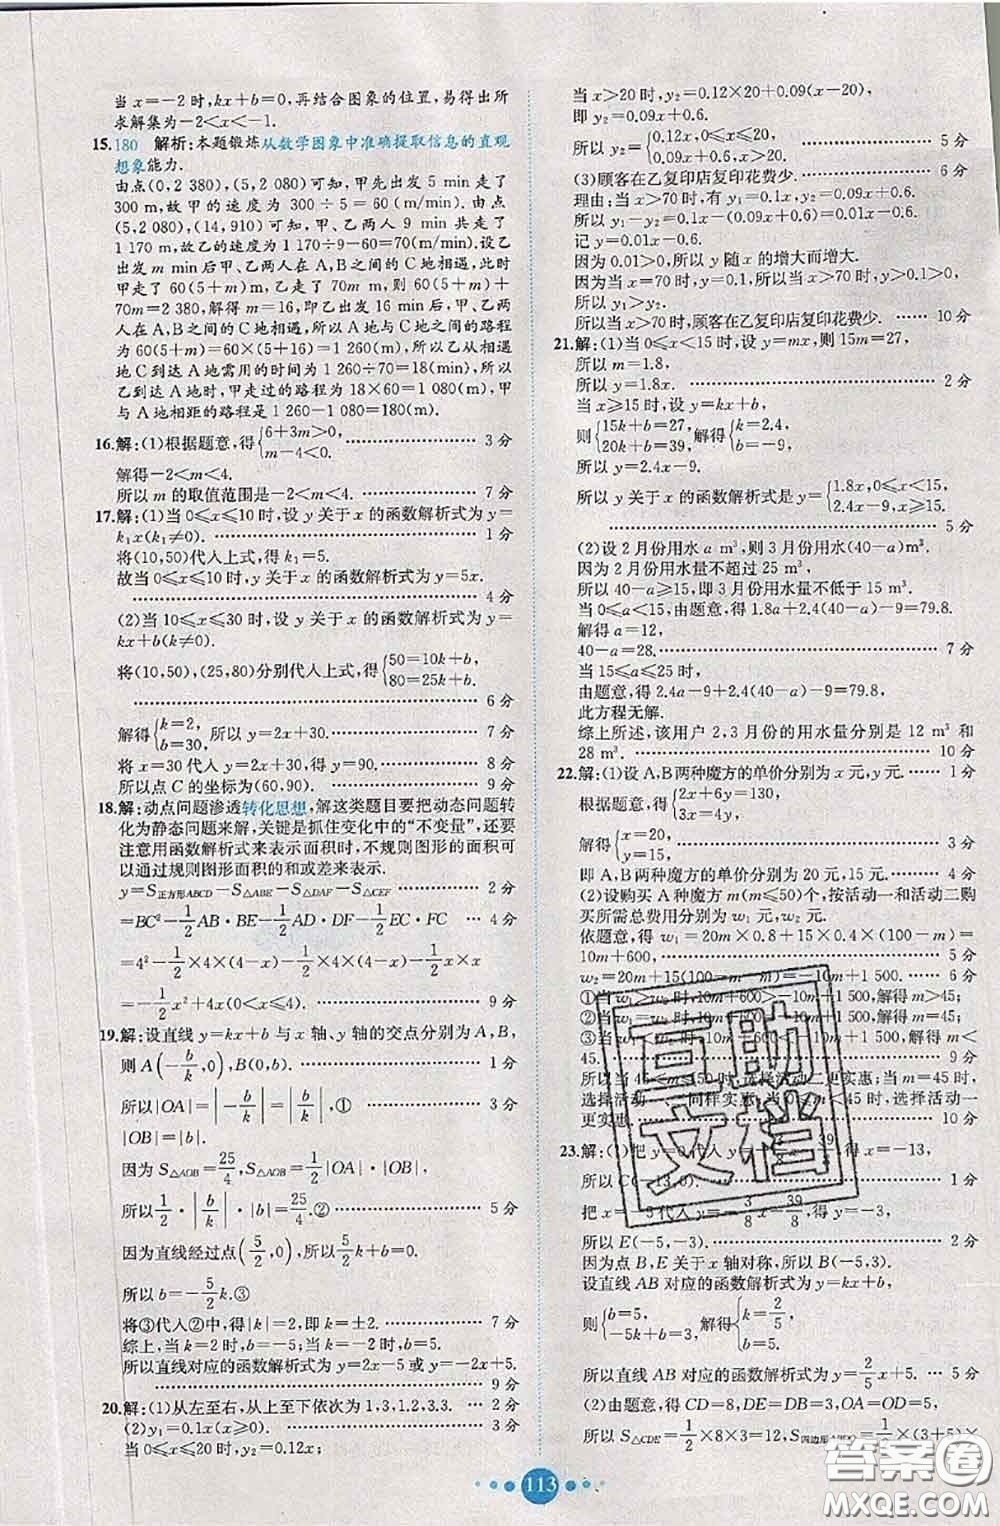 当 x=-2 时,kx+b=0,再结合图象的位置,易得出所
求解集为-2<x<-1.
15.180 解析:本题锻炼从数学图象中准确提取信息的直观
想象能力.
由点(0,2 380),(5,2 080)可知,甲先出发 5 min 走了
300 m,故甲的速度为 300÷5=60(m/min).由点
(5,2 080),(14,910)可知,甲、乙两人 9 min 共走了
1 170 m,故乙的速度为 1 170÷9-60=70(m/min).设乙
出发 m min 后甲、乙两人在 A,B 之间的 C 地相遇,此时
甲走了 60(5+m) m,乙走了 70m m,则 60(5+m)+
70m=2 380,解得 m=16,即乙出发 16 min 后,甲、乙两
人在 A,B 之间的 C 地相遇,所以 A 地与 C 地之间的路程
为 60(5+m)=60×(5+16)=1 260(m),所以乙从相遇
后到达 A 地需用的时间为 1 260÷70=18(min),所以
乙到达 A 地时,甲走过的路程为 18×60=1 080(m),甲
与 A 地相距的路程是 1 260-1 080=180(m).
16.解:(1)根据题意,得{6+3m>0, m-4<0. 3 分
解得-2<m<4.
所以 m 的取值范围是-2<m<4. 7 分
17.解:(1)当 0≤x≤10 时,设 y 关于 x 的函数解析式为 y=
k₁x(k₁≠0). 1 分
将(10,50)代入上式,得 k₁=5.
故当 0≤x≤10 时,y 关于 x 的函数解析式为 y=5x.
4 分
(2)当 10≤x≤30 时,设 y 关于 x 的函数解析式为 y=
kx+b(k≠0).
将(10,50),(25,80)分别代入上式,得{50=10k+b, 80=25k+b.
6 分
解得{k=2, b=30.所以 y=2x+30. 7 分
将 x=30 代入 y=2x+30,得 y=90. 8 分
所以点 C 的坐标为(60,90). 9 分
18.解:动点问题渗透转化思想,解这类题目要把动态问题转
化为静态问题来解,关键是抓住变化中的“不变量”,还要
注意用函数解析式来表示面积时,不规则图形的面积可
以通过规则图形面积的和或差来表示.
y=S正方形ABCD-S△ABE-S△DAF-S△CEF 2 分
=BC²-1/2 AB·BE-1/2 AD·DF-1/2 EC·FC 4 分
=4²-1/2×4×(4-x)-1/2×4×(4-x)-1/2 x×x
=-1/2 x²+4x(0<x≤4). 9 分
19.解:设直线 y=kx+b 与 x 轴、y 轴的交点分别为 A,B,
则 A(-b/k,0),B(0,b). 1 分
所以|OA|=|-b/k|=|b/k|,① 3 分
|OB|=|b|.
因为 S△AOB=25/4,S△AOB=1/2|OA|·|OB|,
所以 1/2·|b/k|·|b|=25/4.② 5 分
因为直线经过点(5/2,0),所以 5/2 k+b=0.
所以 b=-5/2 k.③
将③代入②中,得|k|=2,即 k=±2. 7 分
综上,当 k=2 时,b=-5;当 k=-2 时,b=5.
所以直线对应的函数解析式为 y=2x-5 或 y=-2x+5.
9 分
20.解:(1)从左至右,从上至下依次为 1,3,1.2,3.3. 2 分
(2)y₁=0.1x(x≥0). 3 分
当 0≤x≤20 时,y₂=0.12x;
当 x>20 时,y₂=0.12×20+0.09(x-20),
即 y₂=0.09x+0.6.
所以 y₂={0.12x,0≤x≤20, 0.09x+0.6,x>20. 5 分
(3)顾客在乙复印店复印花费少. 6 分
理由:当 x>70 时,有 y₁=0.1x,y₂=0.09x+0.6,
所以 y₁-y₂=0.1x-(0.09x+0.6)=0.01x-0.6.
记 y=0.01x-0.6.
因为 0.01>0,所以 y 随 x 的增大而增大.
因为当 x=70 时,y=0.1,所以当 x>70 时,y>0.1,
所以 y₁>y₂.
所以当 x>70 时,顾客在乙复印店复印花费少. 10 分
21.解:(1)当 0≤x<15 时,设 y=mx,则 15m=27,
所以 m=1.8,
所以 y=1.8x. 2 分
当 x≥15 时,设 y=kx+b,
则{15k+b=27, 20k+b=39,解得{k=2.4, b=-9.
所以 y=2.4x-9.
所以 y 关于 x 的函数解析式是 y={1.8x,0≤x<15, 2.4x-9,x≥15.
5 分
(2)设 2 月份用水 a m³,则 3 月份用水(40-a) m³.
因为 2 月份用水量不超过 25 m³,
所以 40-a≥15,即 3 月份用水量不低于 15 m³.
当 0≤a<15 时,由题意,得 1.8a+2.4(40-a)-9=79.8.
解得 a=12,
40-a=28. 7 分
当 15≤a≤25 时,
由题意,得 2.4a-9+2.4(40-a)-9=79.8.
此方程无解.
综上所述,该用户 2,3 月份的用水量分别是 12 m³ 和
28 m³. 10 分
22.解:(1)设 A,B 两种魔方的单价分别为 x 元,y 元. 1 分
根据题意,得{2x+6y=130, 3x=4y,
解得{x=20, y=15. 3 分
即 A,B 两种魔方的单价分别为 20 元,15 元. 4 分
(2)设购买 A 种魔方 m(m≤50)个,按活动一和活动二购
买所需总费用分别为 w₁ 元,w₂ 元.
依题意,得 w₁=20m×0.8+15×0.4×(100-m)=
10m+600, 5 分
w₂=20m+15(100-m-m)=-10m+1 500. 6 分
①当 w₁>w₂ 时,10m+600>-10m+1 500,解得 m>45;
②当 w₁=w₂ 时,10m+600=-10m+1 500,解得 m=45;
③当 w₁<w₂ 时,10m+600<-10m+1 500,解得 m<
45. 9 分
所以当 45<m≤50 时,选择活动二更实惠;当 m=45 时,
选择活动 同样实惠;当 0≤m<45 时,选择活动一
更实惠. 10 分
23.解:(1)把 y=0 代入 y=- 39 得 x=-13,
所以 C(-13,0). 1 分
把 x=-5 代入 y=-3/8 x-39/8,得 y=-3,
所以 E(-5,-3). 2 分
因为点 B,E 关于 x 轴对称,所以 B(-5,3).
设直线 AB 对应的函数解析式为 y=kx+b,
则{b=5, -5k+b=3,解得{k=2/5, b=5.
所以直线 AB 对应的函数解析式为 y=2/5 x+5. 5 分
(2)由题意,得 CD=8,DE=DB=3,OA=OD=5,
所以 S△CDE=1/2×8×3=12,S四边形ABDO=1/2×(3+5)×
113
百助文档
答案圈
MXQE.COM